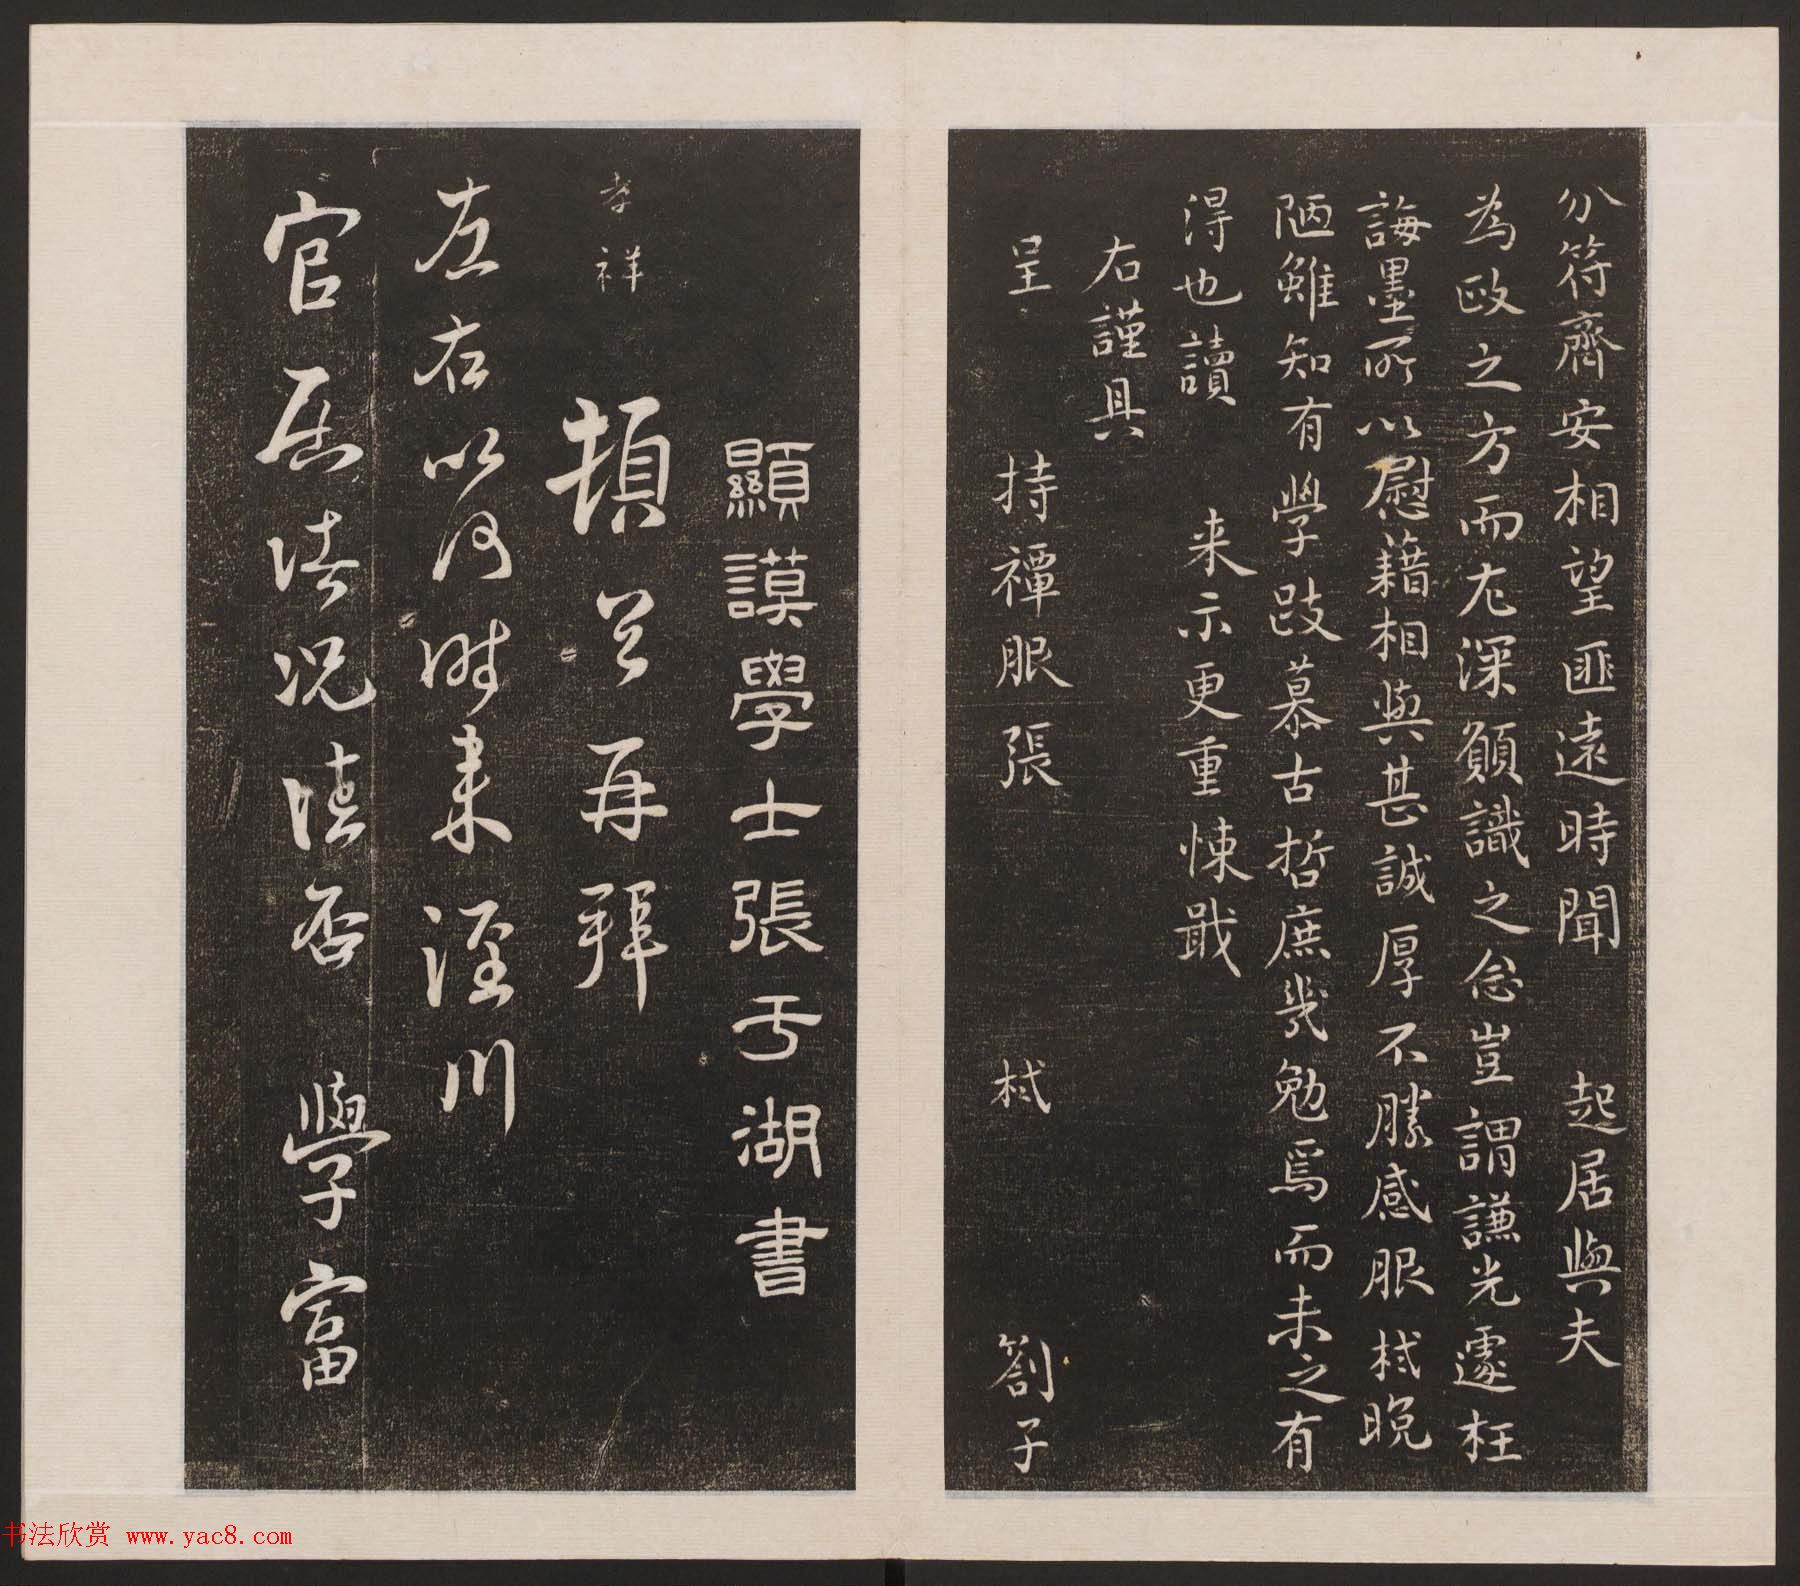 分符齊安相望匪遠時聞起居與夫
為政之方而尤深願識之念豈謂謙光遽枉
誨墨所以慰藉相與甚誠厚不勝感服栻晚
陋雖知有學跂慕古哲庶幾勉焉而未之有
得也讀来示更重悚戢
右謹具
呈持禫服張栻劄子
顯謨學士張于湖書
孝祥頓首再拜
左右以何時来涇川
官居法况佳否學富
書法欣赏 www.yac8.com